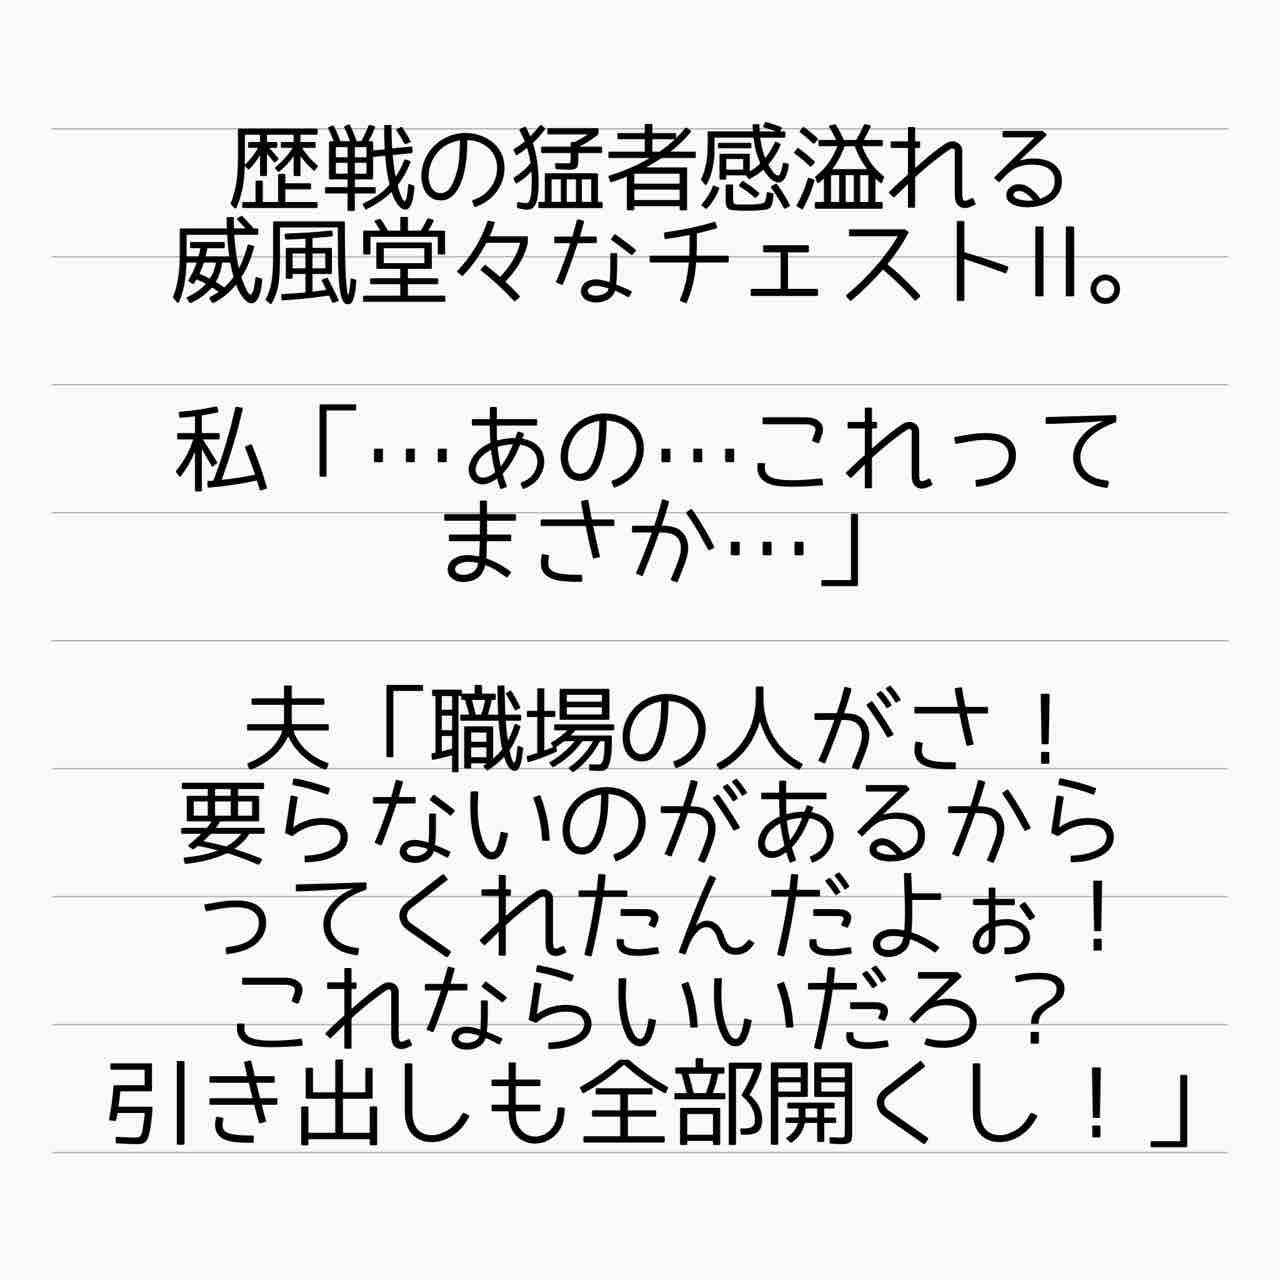 歴戦の猛者感溢れる
威風堂々なチェストII。
私「…あの…これって
まさか…」
夫「職場の人がさ！
要らないのがあるから
ってくれたんだよぉ！
これならいいだろ？
引き出しも全部開くし！」